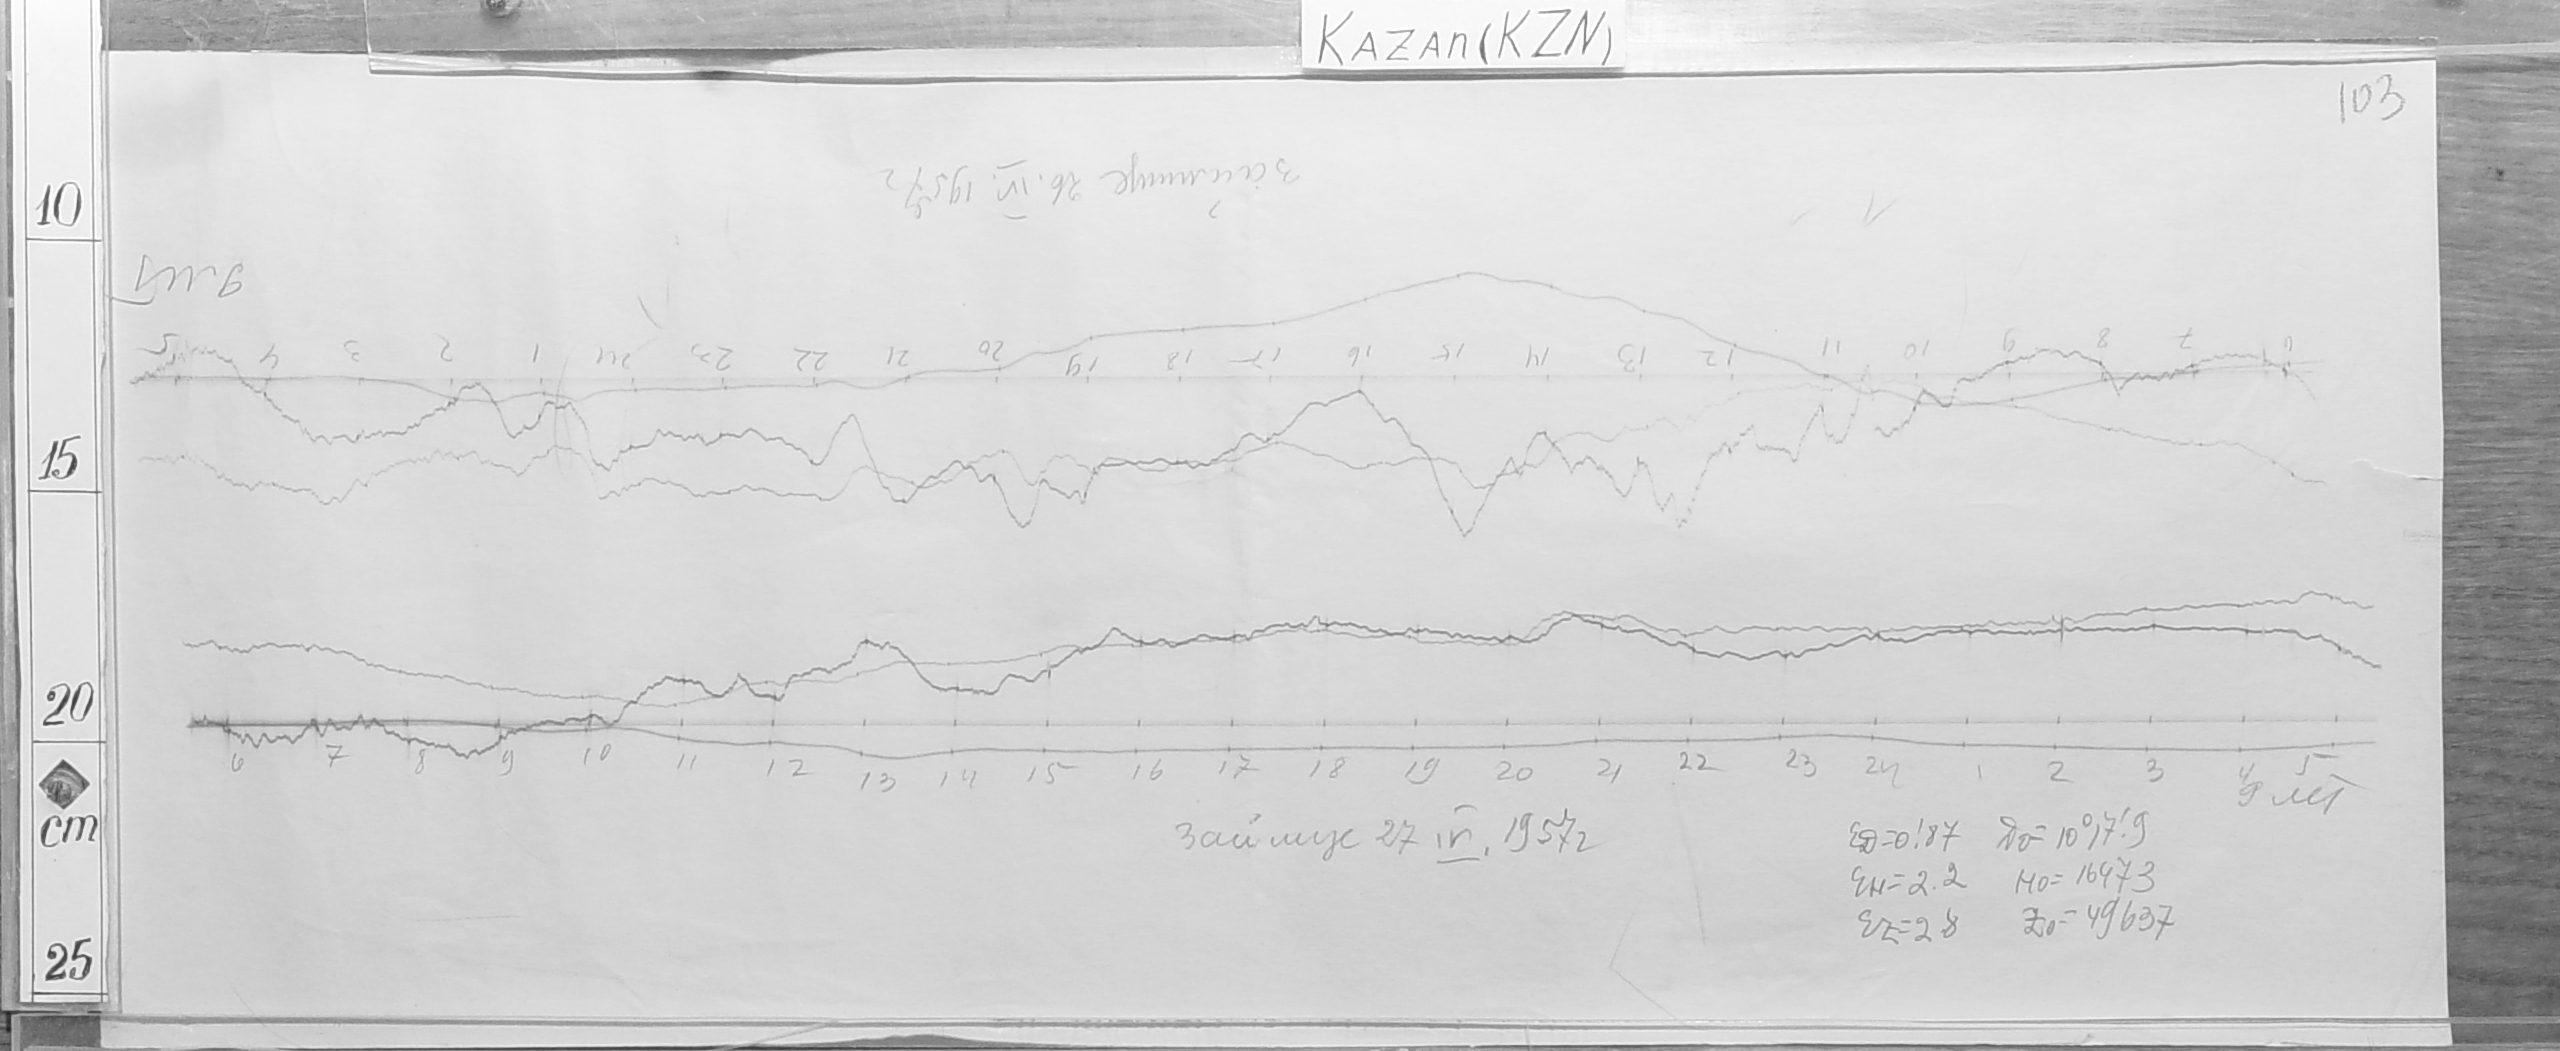 Kazan (KZN)
103
Займище 26.IV.1957г
9 LMT
5 4 3 2 1 24 23 22 21 20 19 18 17 16 15 14 13 12 11 10 9 8 7 6
10
15
20
cm
25
6 7 8 9 10 11 12 13 14 15 16 17 18 19 20 21 22 23 24 1 2 3 4 5
Займище 27 IV. 1957г
εD=0!87 D0=10°17!9
εH=2.2 H0=16473
εZ=2.8 Z0=49637